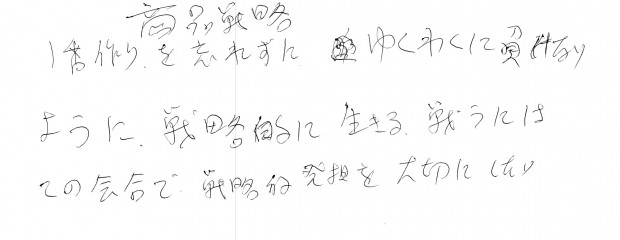 商品戦略
1番作りを忘れずに ゆくわくに負けない
ように、戦略的に生きる。戦うには
ての会合で 戦略的発想を大切にしたい